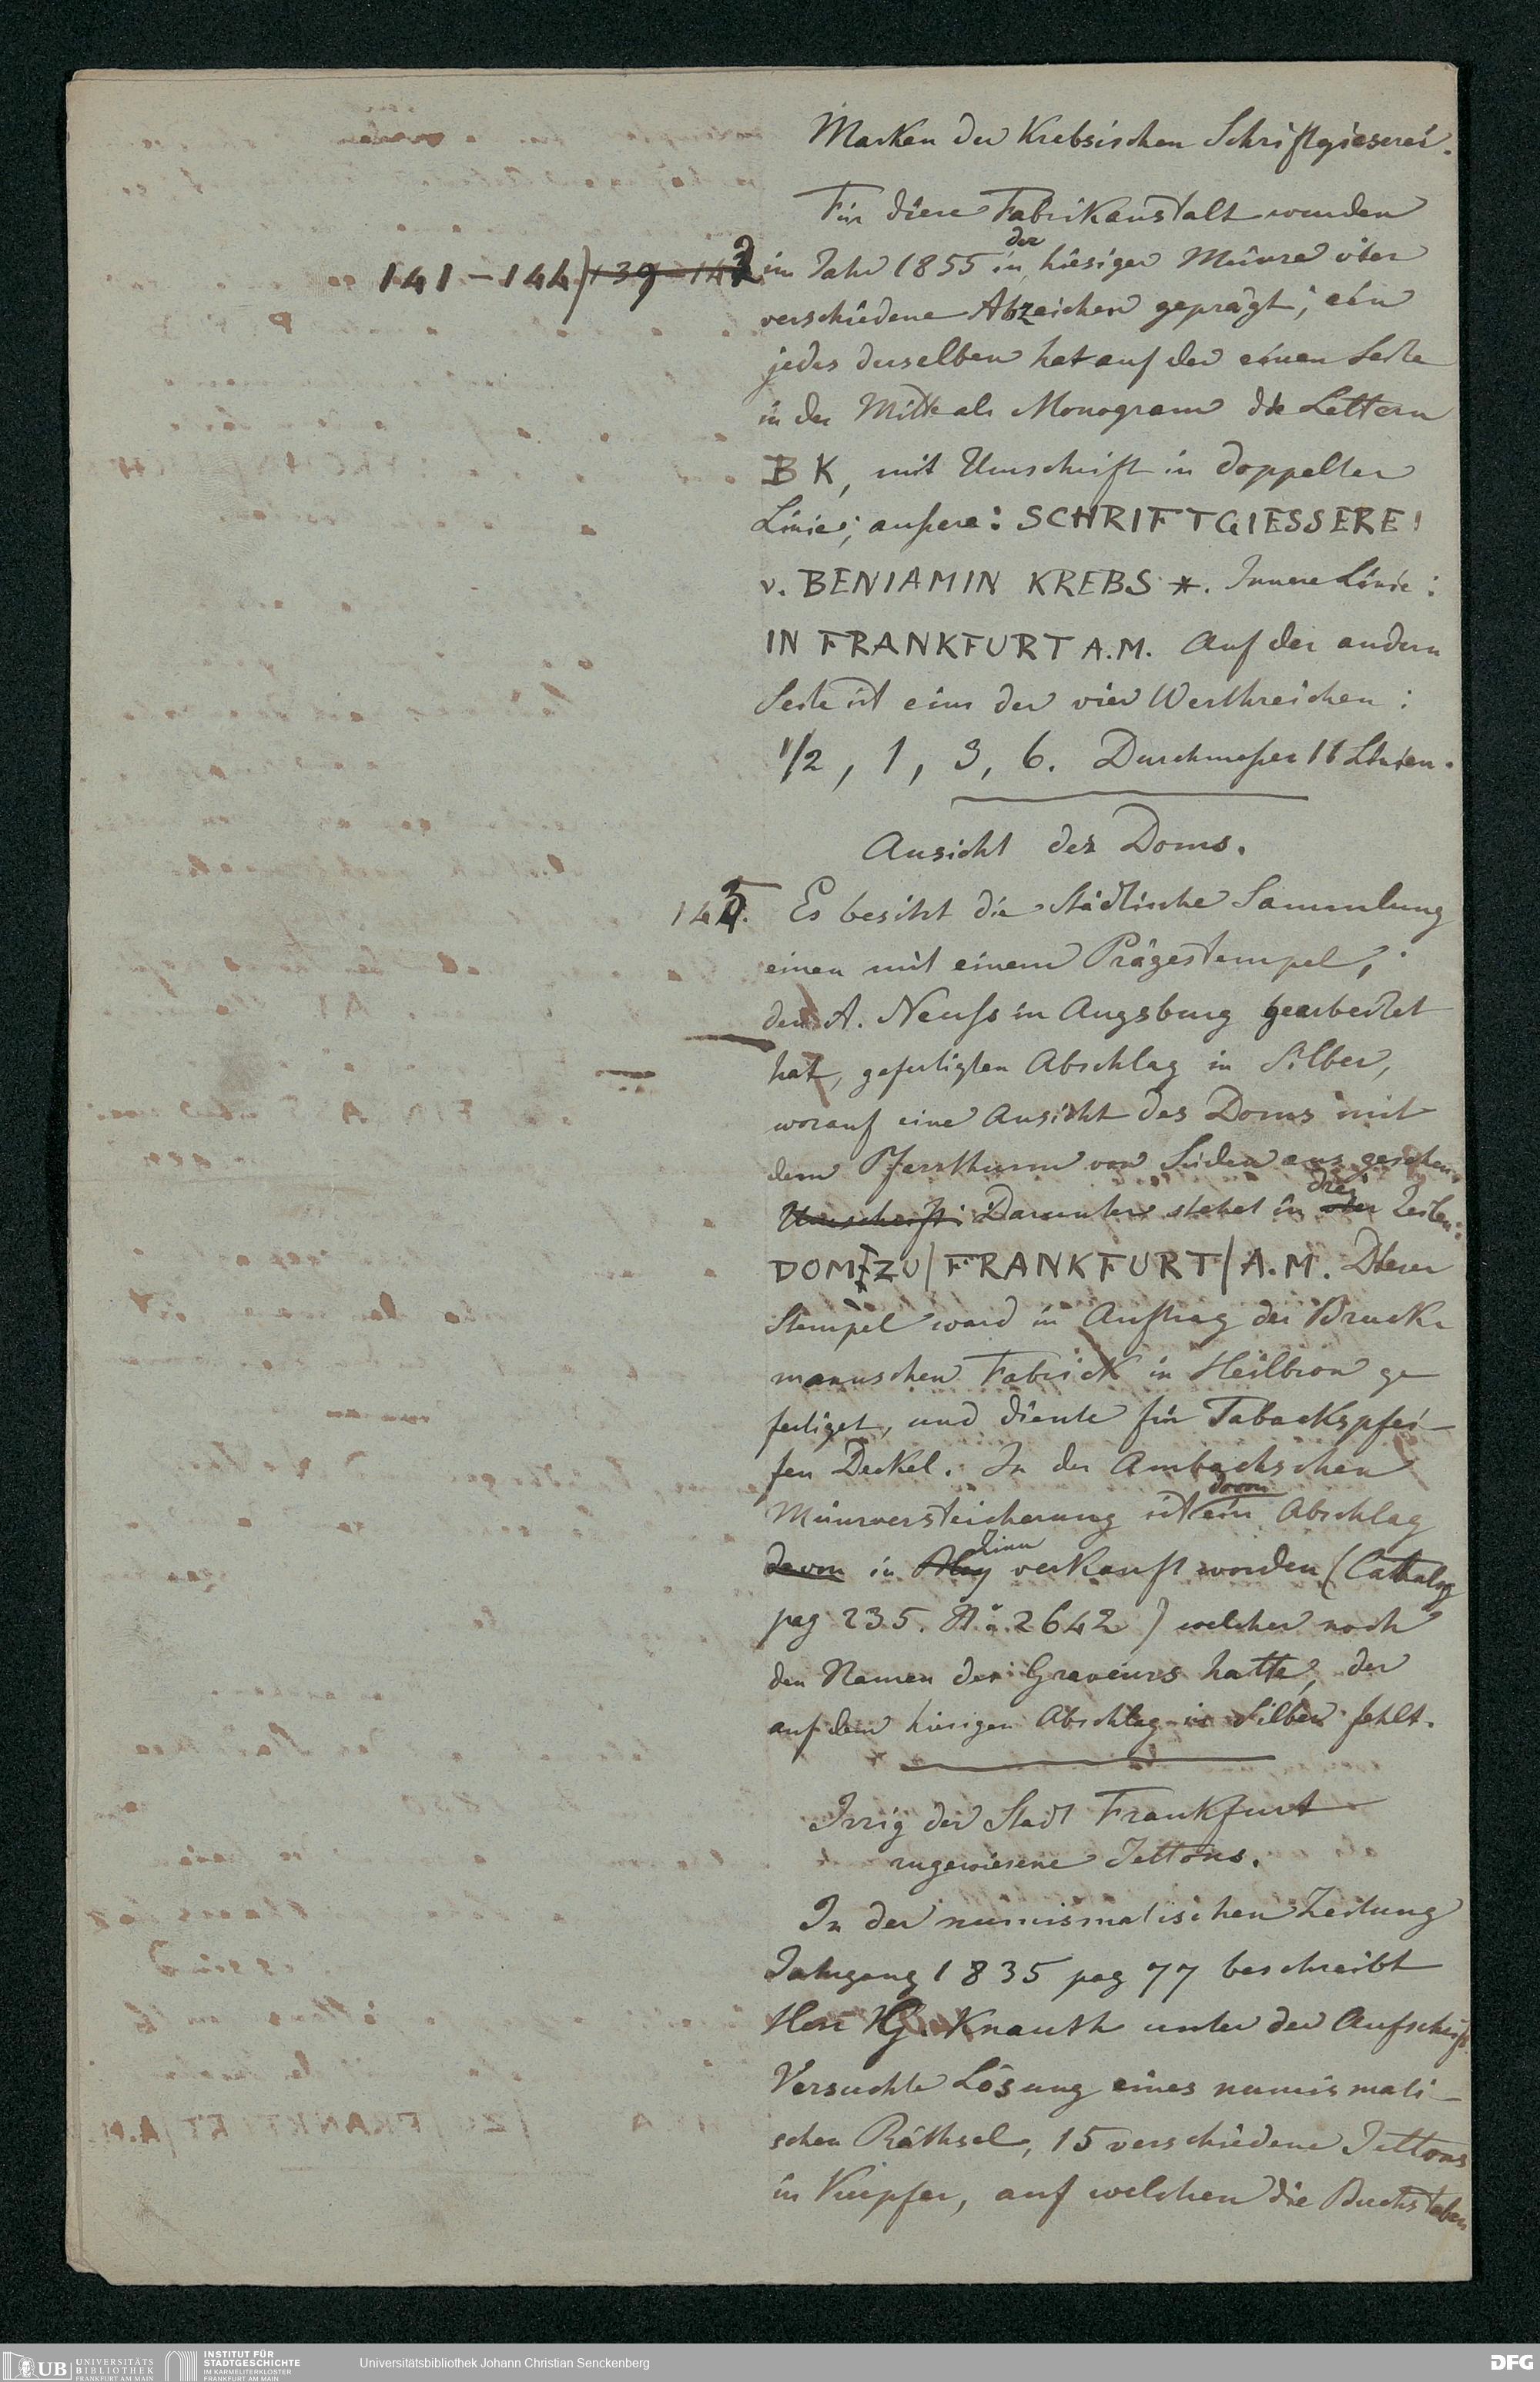 Marken der Krebsischen Schriftgieserei.
Für diese Fabrikanstalt wurden
141-144) 139-142 im Jahr 1855 in der hiesigen Münze vier
verschiedene Abzeichen geprägt; ein
jedes derselben hat auf der einen Seite
in der Mitte als Monogram die Lettern
B K, mit Umschrift in doppelter
Linie; äußere: SCHRIFTGIESSEREI
v. BENIAMIN KREBS *. Innere Linie:
IN FRANKFURT A.M. Auf der andern
Seite ist eins der vier Werthzeichen:
1/2, 1, 3, 6. Durchmeßer 11 Linien.
Ansicht des Doms.
145. Es besitzt die städtische Sammlung
einen mit einem Prägestempel,
den A. Neuß in Augsburg gearbeitet
hat, gefertigten Abschlag in Silber,
worauf eine Ansicht des Doms mit
dem Pfarrthurm von Süden aus gesehen.
Umschrift: Darunter stehet in drei Zeilen:
DOM/ZU/FRANKFURT/A.M. Dieser
Stempel ward in Auftrag der Bruck-
mannschen Fabrick in Heilbron ge
fertiget, und diente für Tabackspfei-
fen Deckel. In der Ambachschen
Münzversteicherung ist davon ein Abschlag
davon in Zinn verkauft worden (Cathalog
pag 235. No. 2642) welcher noch
den Namen des Graveurs hatte, der
auf dem hiesigen Abschlag in Silber fehlt.
Irrig der Stadt Frankfurt
zugewiesene Jettons.
In der numismatischen Zeitung
Jahrgang 1835 pag 77 beschreibt
Herr Knauth unter der Aufschrift
Versuchte Lösung eines numismati-
schen Räthsel, 15 verschiedene Jettons
in Kupfer, auf welchen die Buchstaben
UB UNIVERSITÄTS
BIBLIOTHEK
FRANKFURT AM MAIN
INSTITUT FÜR
STADTGESCHICHTE
IM KARMELITERKLOSTER
FRANKFURT AM MAIN
Universitätsbibliothek Johann Christian Senckenberg
DFG